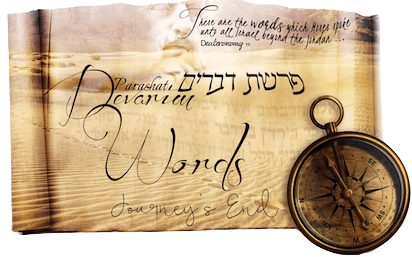 These are the words which Moses spoke
unto all Israel beyond the Jordan...
Deuteronomy 1:1
Parashat פרשת דברים
Devarim
Words
Journey's End
SE
SW